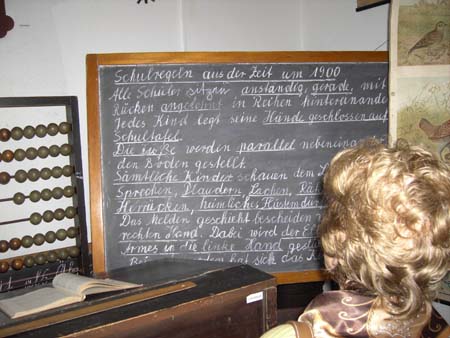 Schulregeln aus der Zeit um 1900
Alle Schüler sitzen anständig, gerade, mit
Rücken angelehnt in Reihen hintereinande
Jedes Kind legt seine Hände geschlossen auf
Schultafel.
Die Füße werden parallel nebeneinan
den Boden gestellt.
Sämtliche Kinder schauen den
Sprechen, Plaudern, Lachen,
heimliches
Das Melden geschieht bescheiden
rechten Hand. Dabei wird der
Armes in die linke Hand
hat sich das